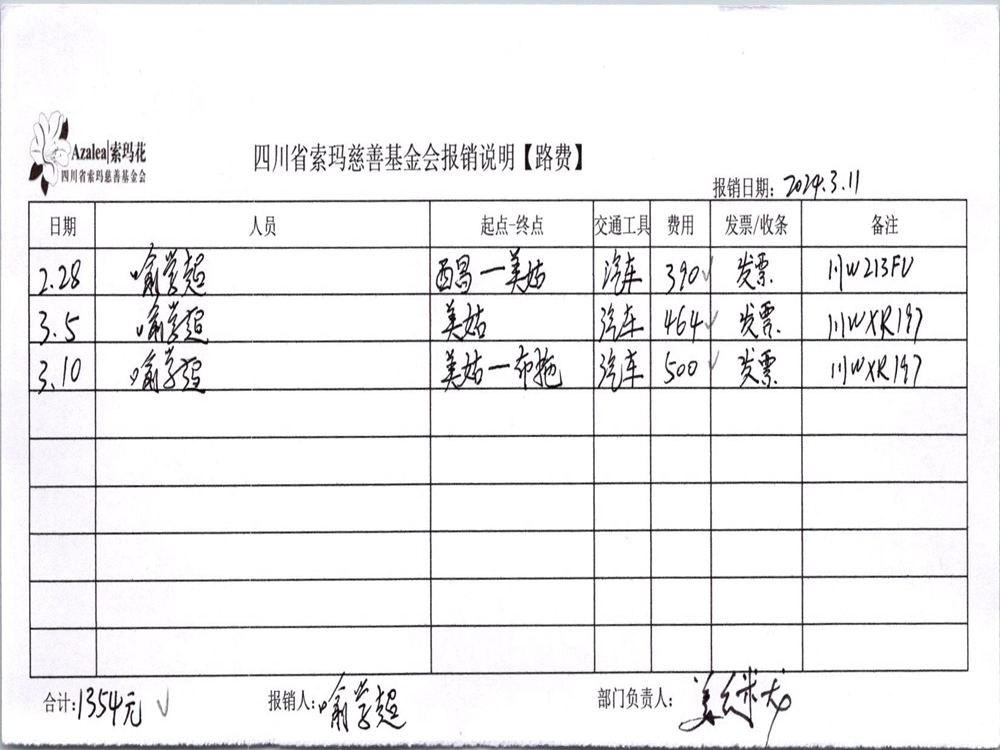 Azalea|索玛花
四川省索玛慈善基金会
四川省索玛慈善基金会报销说明【路费】
报销日期：2024.3.11
日期 人员 起点-终点 交通工具 费用 发票/收条 备注
2.28 喻学超 西昌—美姑 汽车 390 发票 川W213FU
3.5 喻学超 美姑 汽车 464 发票 川WXR197
3.10 喻学超 美姑—布拖 汽车 500 发票 川WXR197
合计：1354元 报销人：喻学超 部门负责人：